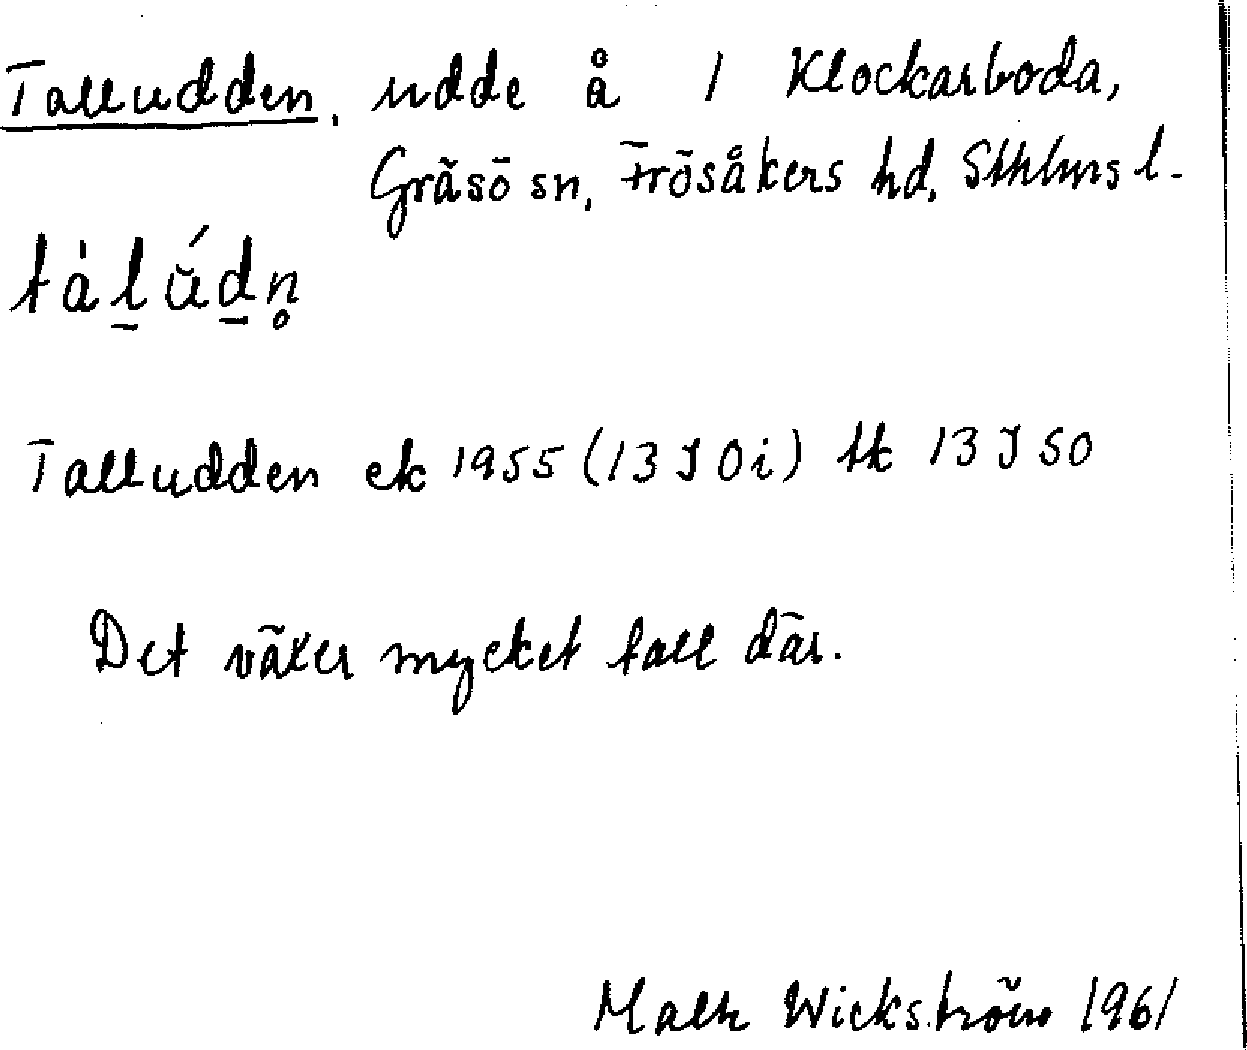 Talludden, udde å 1 Klockarboda,
Gräsö sn, Frösåkers hd, Sthlms l.
tàl̠ŭ́d̠n̥
Talludden ek 1955 (13 J 0i) tk 13 J SO
Det växer mycket tall där.
Wickström 1961